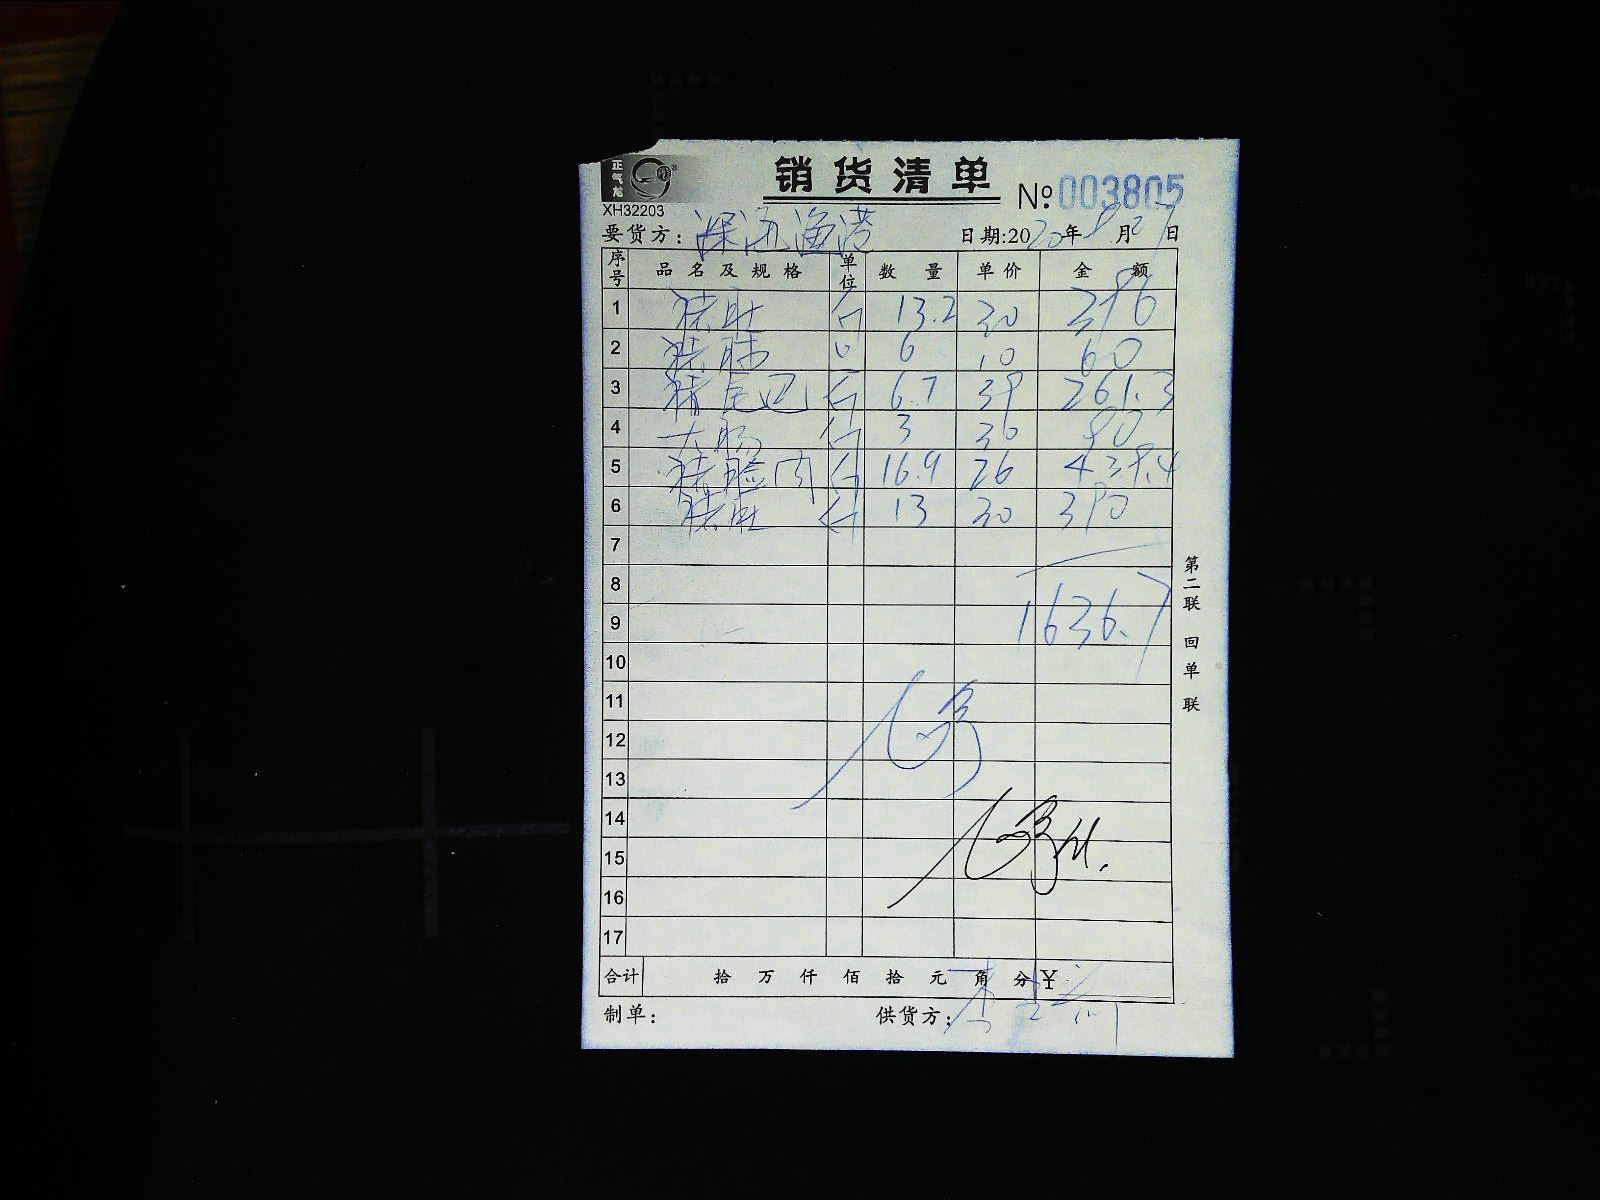 正气龙
销货清单
№:003805
XH32203
要货方: 深 渔港 日期:2020年9月27日
序号 品名及规格 单位 数量 单价 金额
1 猪肚 斤 13.2 30 396
2 猪 6 10 60
3 猪尾巴 斤 6.7 39 261.3
4 大肠 斤 3 30 90
5 猪脸肉 斤 16.9 26 439.4
6 猪肚 斤 13 30 390
7
8
9 1636.7
10
11
12
13
14
15
16
17
合计 拾 万 仟 佰 拾 元 角 分 ¥
制单: 供货方:
第二联 回单联